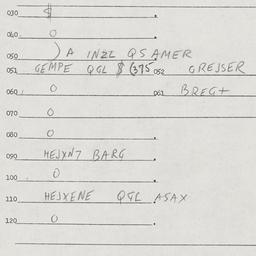 030 $
040 0
050 ) A INZL QS AMER
051 GEMPE QGL $ (375 052 GREJSER
060 0 061 BREG+
070 0
080 0
090 HEJXN7 BARG
100 0
110 HEJXENE QGL ASAX
120 0